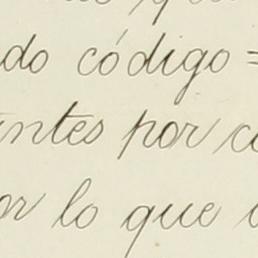 do código=
ntes por c
or lo que